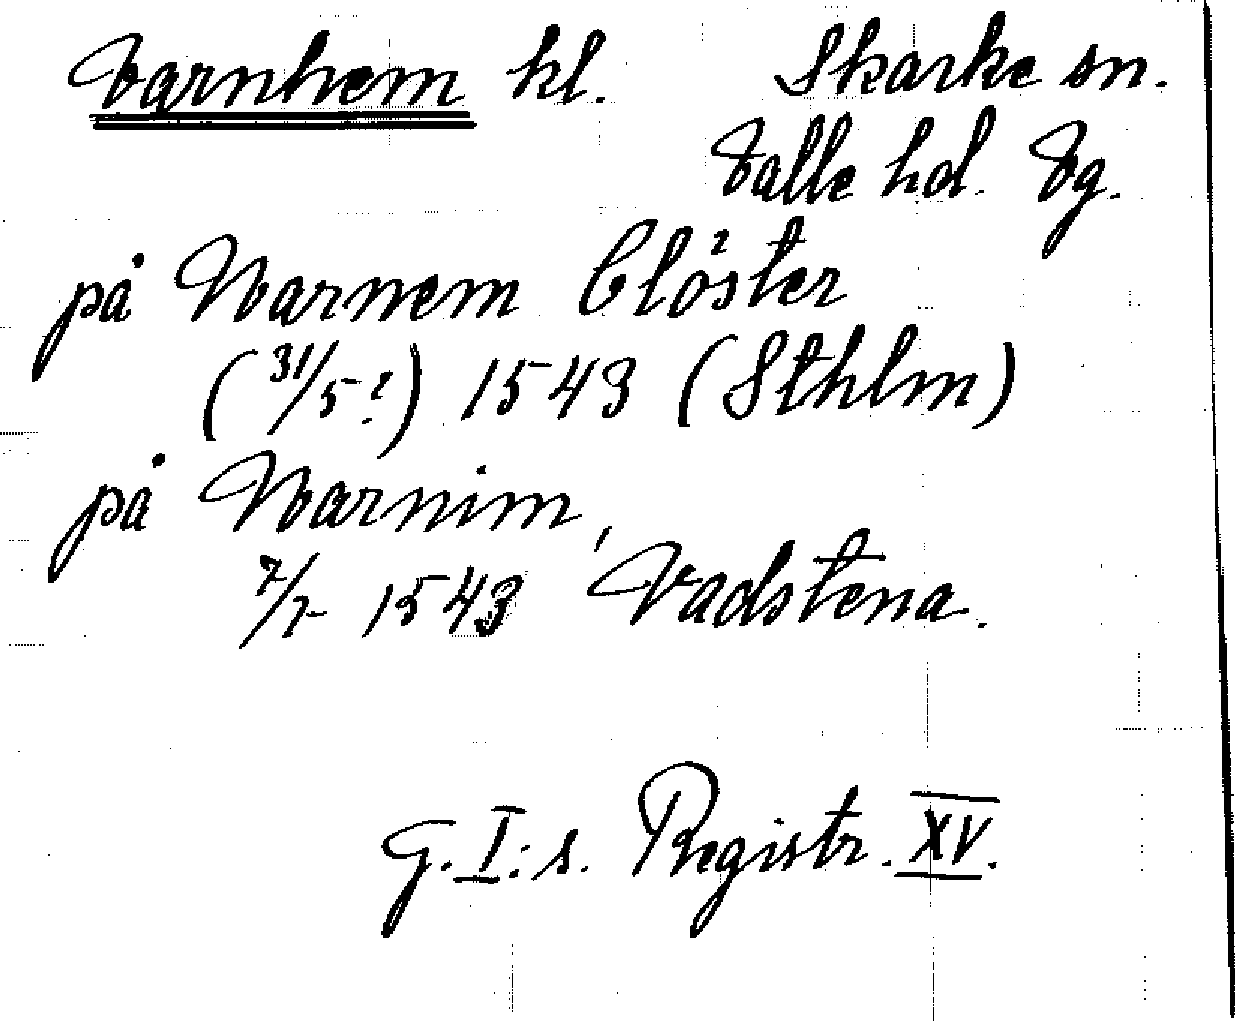 Varnhem kl. Skarke sn.
Valle hd. Vg.
på Warnem Clöster
(31/5?) 1543 (Sthlm)
på Warnim,
7/7 1543 Vadstena.
G. I:s. Registr. XV.